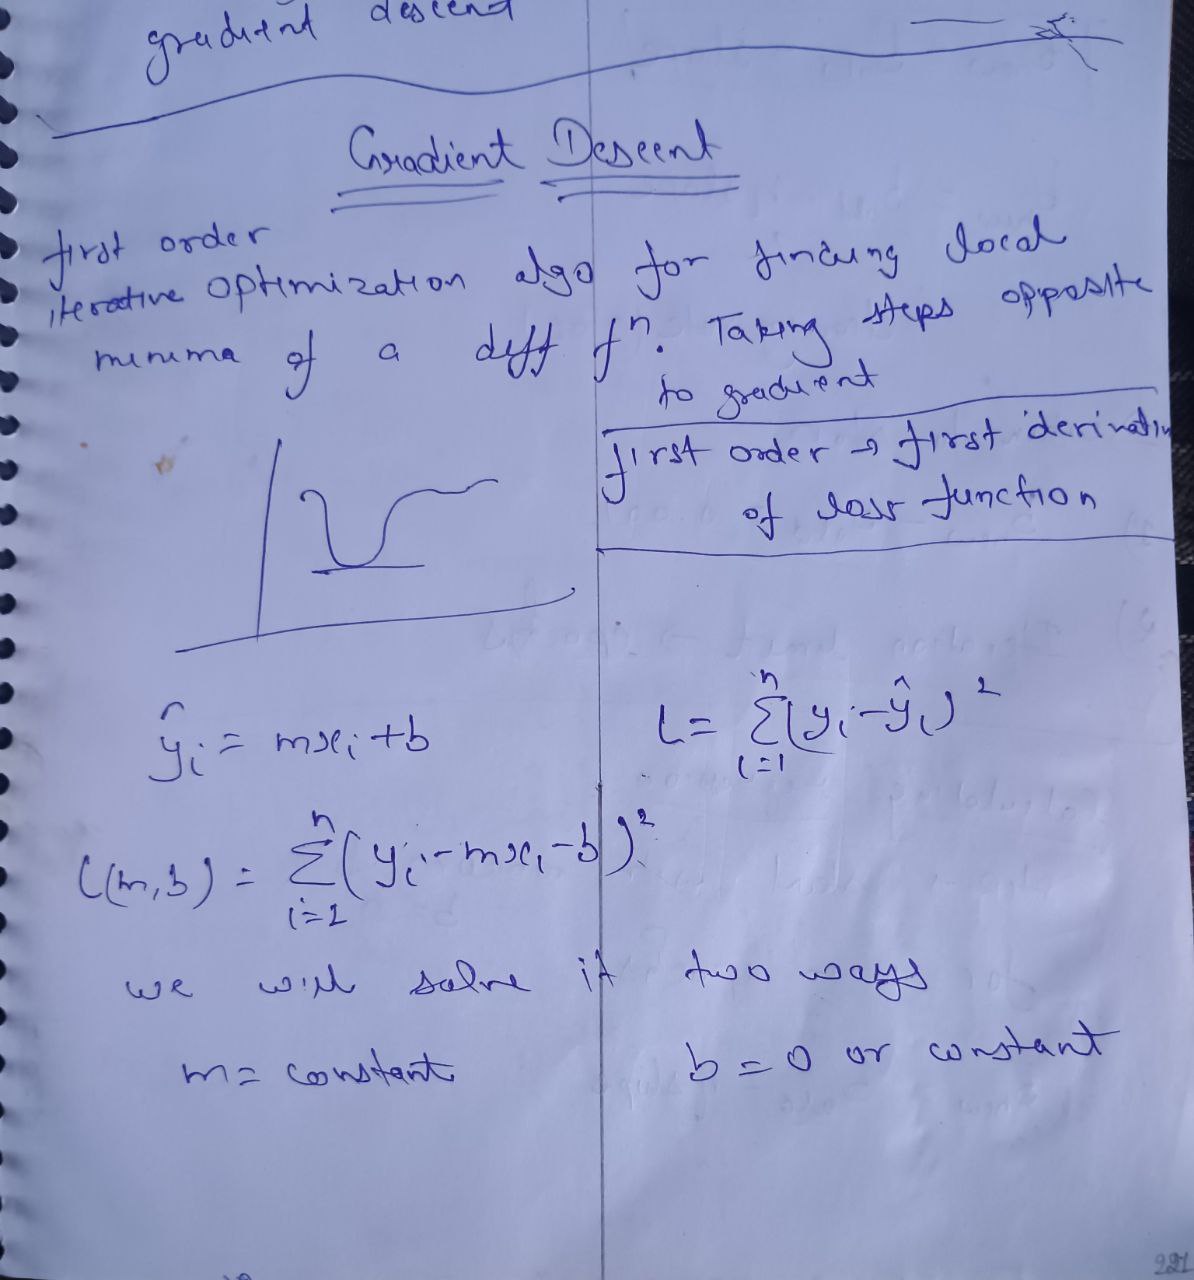 gradient descent
Gradient Descent
first order
iterative optimization algo for finding local
minima of a diff fⁿ. Taking steps opposite
to gradient
first order → first derivativ
of loss function
ŷᵢ = mxᵢ + b
L = Σ(yᵢ - ŷᵢ)² n i=1
L(m,b) = Σ(yᵢ - mxᵢ - b)² n i=1
we will solve it two ways
m = constant b = 0 or constant
221